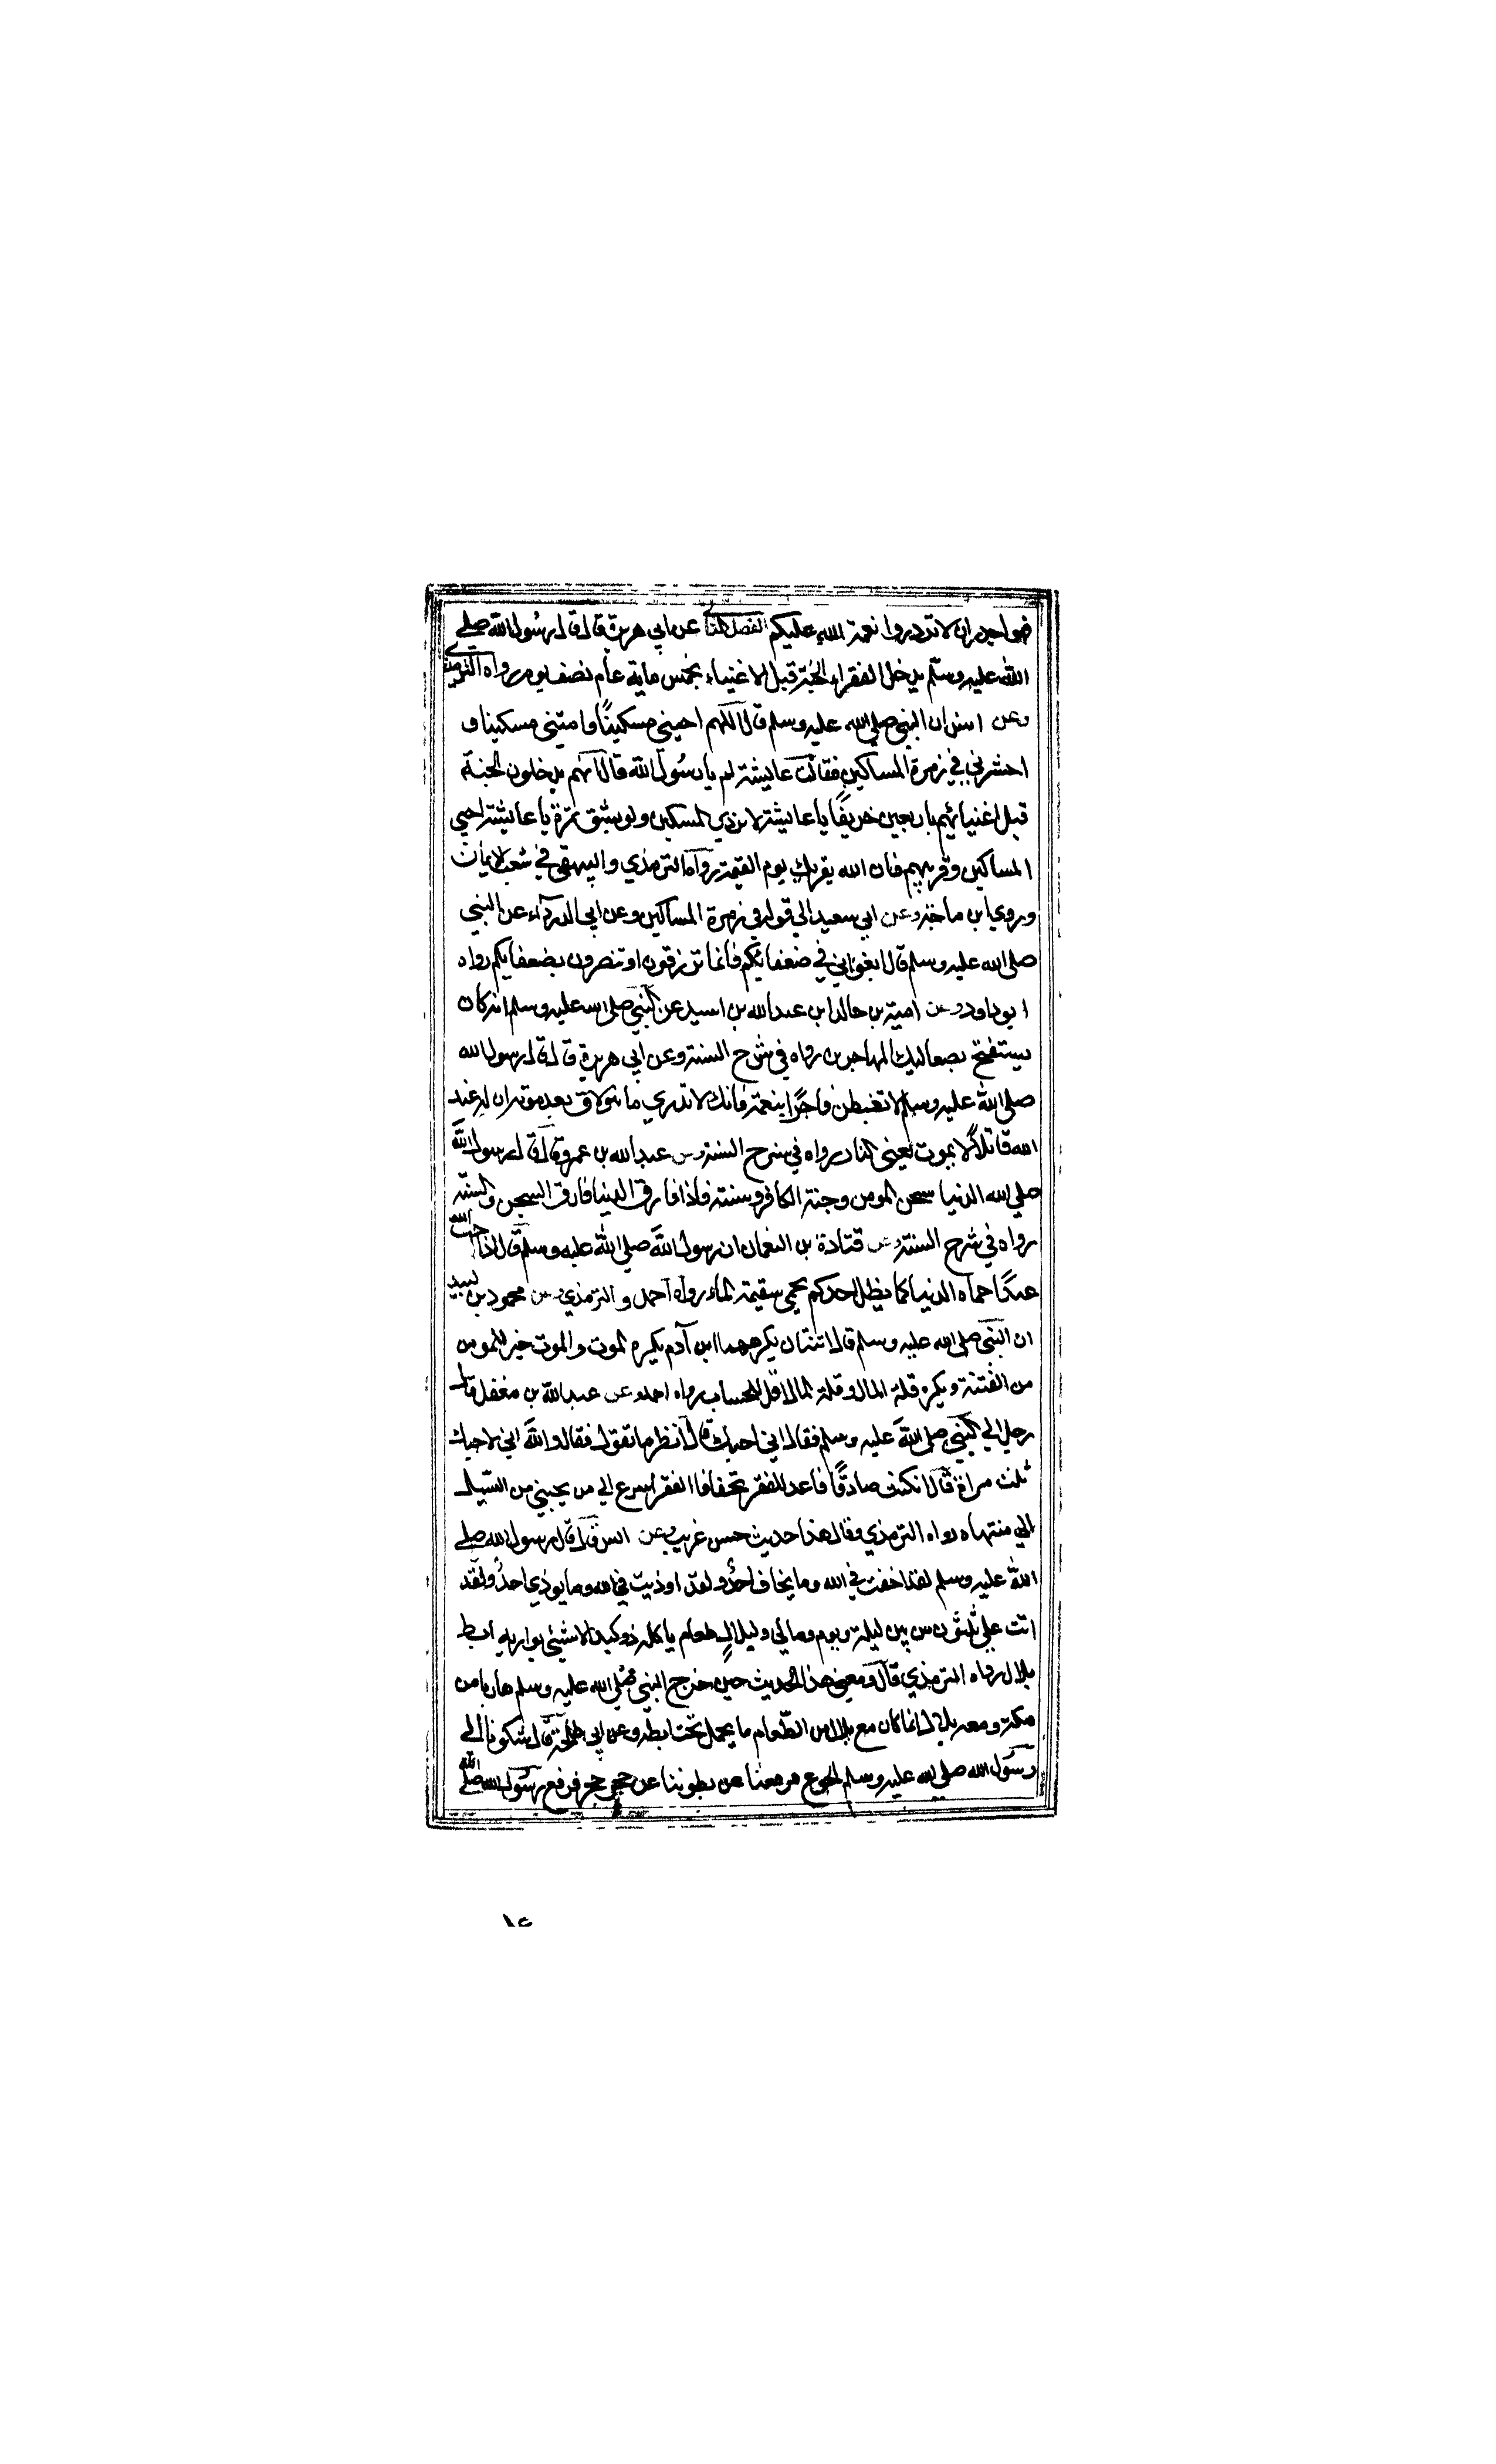 فهو اجدر ان لا تزدروا نعمة الله عليكم الفصل الثاني عن ابي هريرة قال قال رسول الله صلي
الله عليه وسلم يدخل الفقراء الجنة قبل الاغنياء بخمس ماية عام نصف يوم رواه الترمذي
وعن انس ان النبي صلي الله عليه وسلم قال اللهم احيني مسكينًا وامتني مسكينا و
احشرني في زمرة المساكين فقالت عايشة لم يا رسول الله قال انهم يدخلون الجنة
قبل اغنيائهم باربعين خريفًا يا عايشة لا تردي المسكين ولو بشق تمرة يا عايشة احبي
المساكين وقربيهم فان الله يقربك يوم القيمة رواه الترمذي والبيهقي في شعب الايمان
وروي ابن ماجة وعن ابي سعيد الي قوله في زمرة المساكين وعن ابي الدرداء عن النبي
صلي الله عليه وسلم قال ابغوني في ضعفائكم فانما ترزقون او تنصرون بضعفايكم رواه
ابو داود وعن امية بن خالد ابن عبد الله بن اسيد عن النبي صلي الله عليه وسلم انه كان
يستفتح بصعاليك المهاجرين رواه في شرح السنة وعن ابي هريرة قال قال رسول الله
صلي الله عليه وسلم لا تغبطن فاجرًا بنعمة فانك لا تدري ما هو لاق بعد موته ان له عند
الله قاتلاً لا يموت يعني النار رواه في شرح السنة وعن عبد الله بن عمرو قال قال رسول الله
صلي الله الدنيا سجن المومن وجنة الكافر وسنته فاذا فارق الدنيا فارق السجن والسنة
رواه في شرح السنة وعن قتادة بن النعمان ان رسول الله صلي الله عليه وسلم قال اذا احب الله
عبدًا حماه الدنيا كما يظل احدكم يحمي سقيمه الماء رواه احمد والترمذي وعن محمود بن لبيد
ان النبي صلي الله عليه وسلم قال اثنتان يكرههما ابن آدم يكره الموت والموت خير للمومن
من الفتنة ويكره قلة المال وقلة المال اقل للحساب رواه احمد وعن عبد الله بن مغفل قال
رجل الي النبي صلي الله عليه وسلم فقال اني احبك قال انظر ما تقول فقال والله اني لاحبك
ثلث مرات قال ان كنت صادقًا فاعد للفقر تجفافا الفقر اسرع الي من يحبني من السيل
الي منتهاه رواه الترمذي وقال هذا حديث حسن غريب وعن انس قال قال رسول الله صلي
الله عليه وسلم لقد اخفت في الله وما يخاف احدٌ ولقد اوذيت في الله وما يوذي احدٌ ولقد
اتت علي ثلثون من بين ليلة ويوم ومالي ولبلال طعام ياكله ذو كبد الا شيئي يواريه ابط
بلال رواه الترمذي قال ومعني هذا الحديث حين خرج النبي صلي الله عليه وسلم هاربا من
مكة ومعه بلال انما كان مع بلال من الطعام ما يحمل تحت ابطه وعن ابي طلحة قال شكونا الي
رسول الله صلي الله عليه وسلم الجوع فرفعنا عن بطوننا عن حجر حجر فرفع رسول الله صلي الله